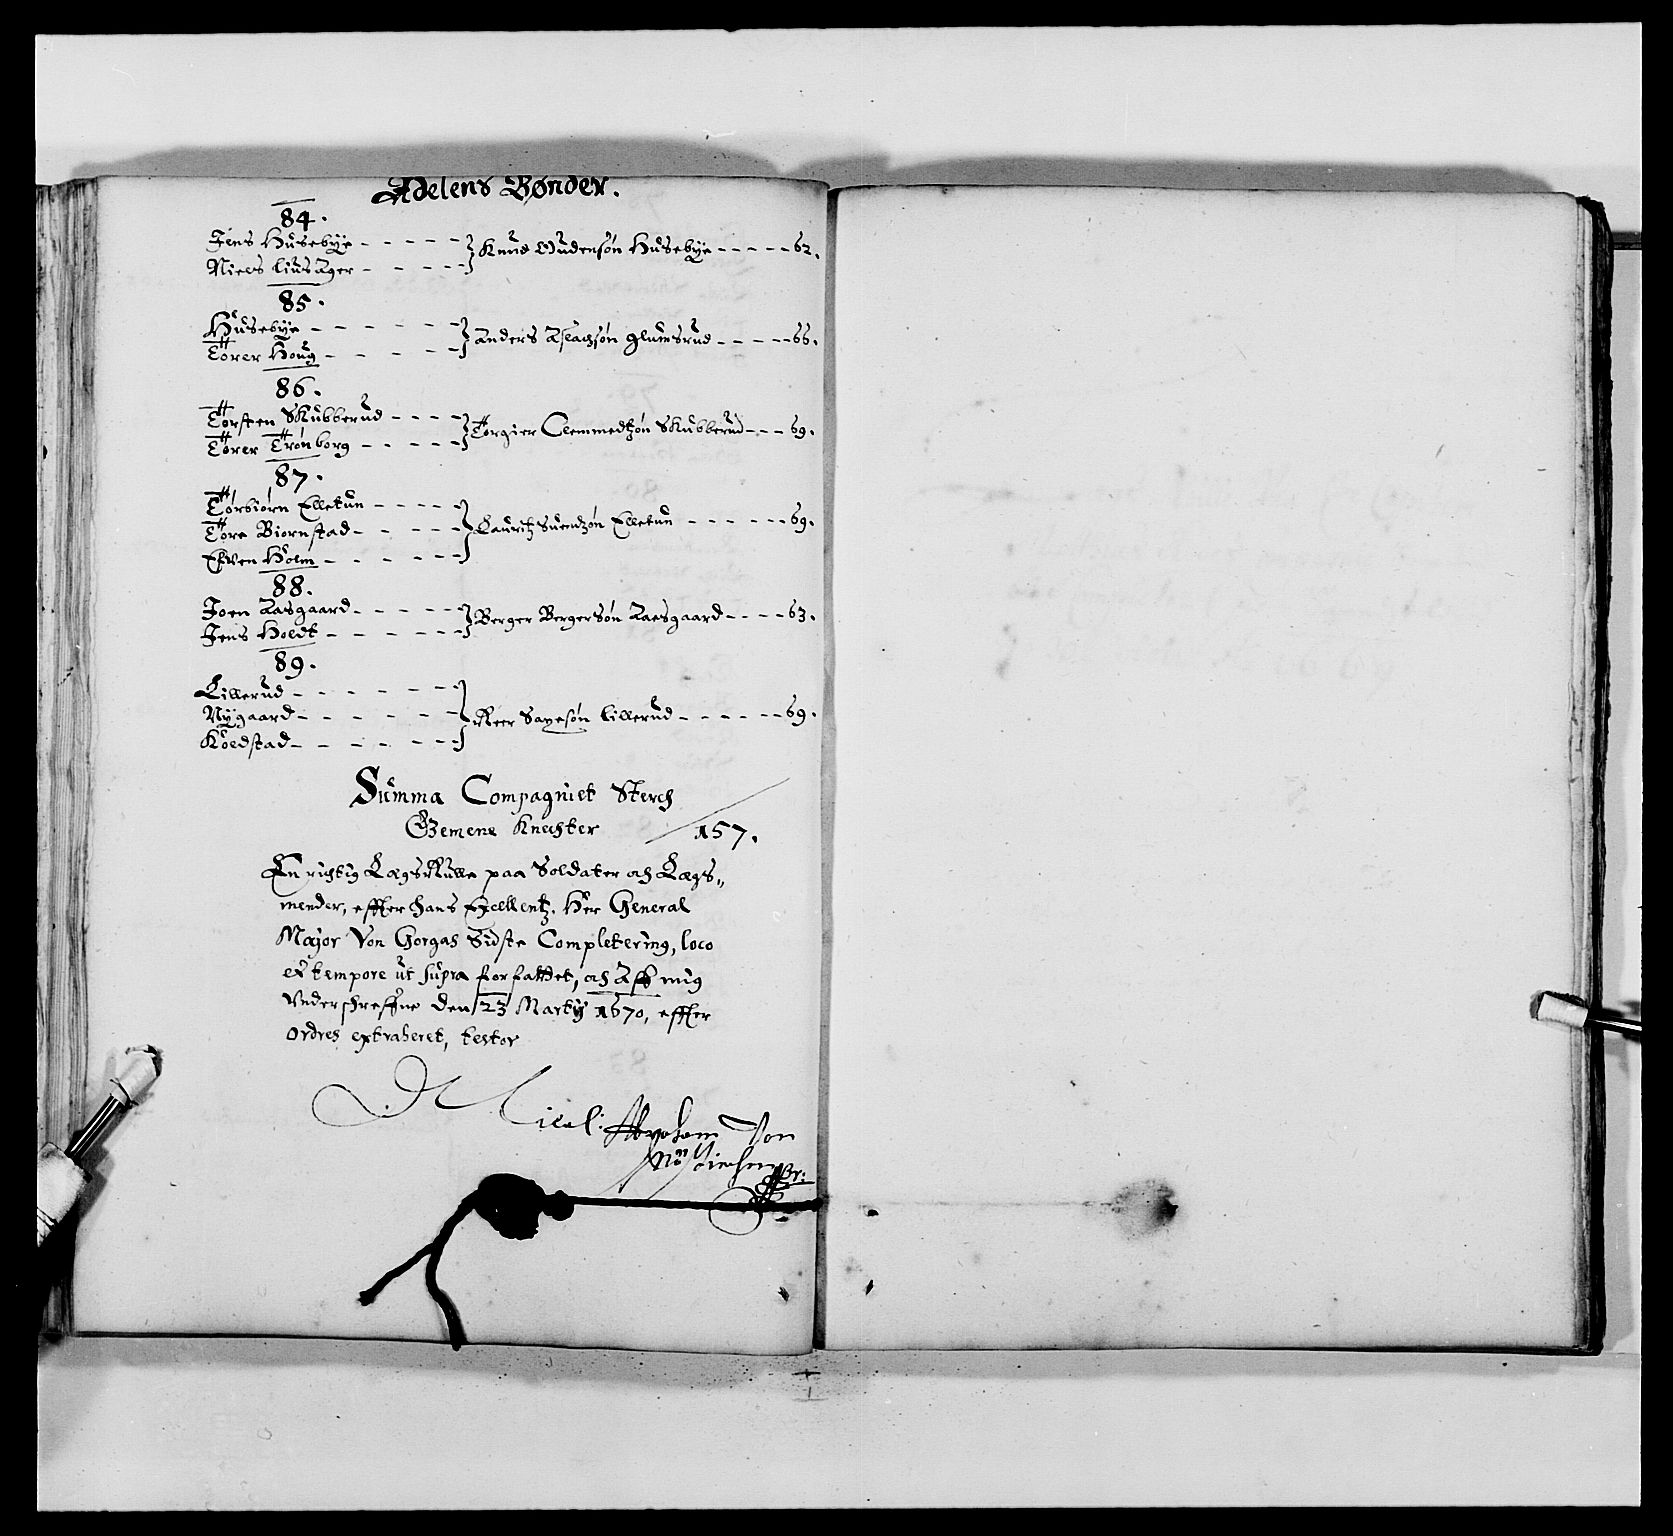 Adelens Bønder.
84.
Jens Husebÿe - - - - -
Niels liusager - - - - -
Knud Gudensøn Husebÿe - - - - - 62.
85.
Husebÿe - - - - -
Torer Houg - - - - -
Anders Aslachsøn Glumsrud - - - - - 66.
86.
Torsten Skubberud - - - -
Torer Tronborg - - - - -
Torgier Clemmedtzøn Skubberud - - - 69.
87.
Torbiørn Elletun - - - - -
Tore Biornstad - - - - -
Efven Holm - - - - -
Lauritz Suendzøn Elletun - - - - - - 69.
88.
Joen Aasgaard - - - - -
Jens Holdt - - - - - -
Berger Bergersøn Aaesgaard - - - - 63.
89.
Lillerud - - - - - -
Nÿgaard - - - - - -
Koldstad - - - - - -
Peer lillerud - - - - - - 69.
Summa Compagniet Sterch
Gemene Knechter 157.
En richtig LægsRulle paa Soldater och Lægs„
mender, effter hans Excellentz. Her General
Major Von Gorgas Sidste Completering, loco
et tempore ut supra forfattet, och Aff mig
Underschreffne den 23 Martÿ 1670, effter
ordres extraheret, testor
Abraham Von